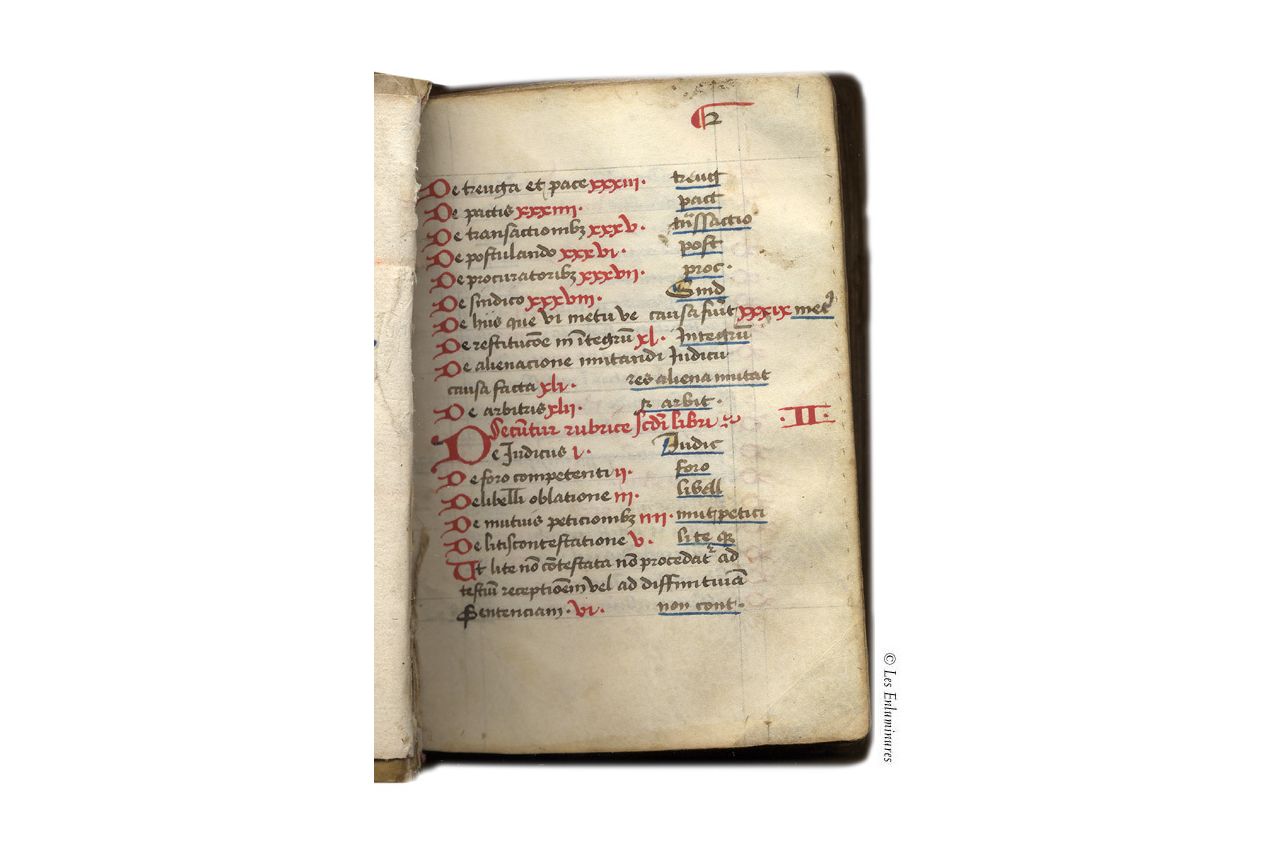 2
De treuga et pace xxxiii. treug
De pactis xxxiiii. pact
De transactiombꝫ xxxv. trãssactio
De postulando xxxvi. post
De procuratoribꝫ xxxvii. proc.
De sindico xxxviii. Sind
De hiis que vi metu ve causa fuĩt xxxix met
De restitucõe in ĩtegrũ xl. Integrũ
De alienacione mutandi Iudicii
causa facta xli. res aliena mutat
De arbitris xlii. arbit.
Secũtur rubrice scđi libri .II.
De Iudiciis i. Iudic
De foro competenti ii. foro
De libelli oblatione iii. libell
De mutuis peticiombꝫ iiii. mut peticì
De litiscontestatione v. lite
Ut lite nõ cõtestata nõ procedat᷑ ad
testiũ receptiõem vel ad diffinitiuã
Sentenciam .vi. non cont.
© Les Enluminures